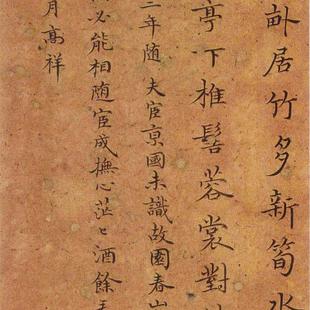 畆居竹多新筍水
亭下椎髻蓉裳對
二年随夫宦京國未識故園春山
必能相随宦成撫心茫々酒餘
月髙祥